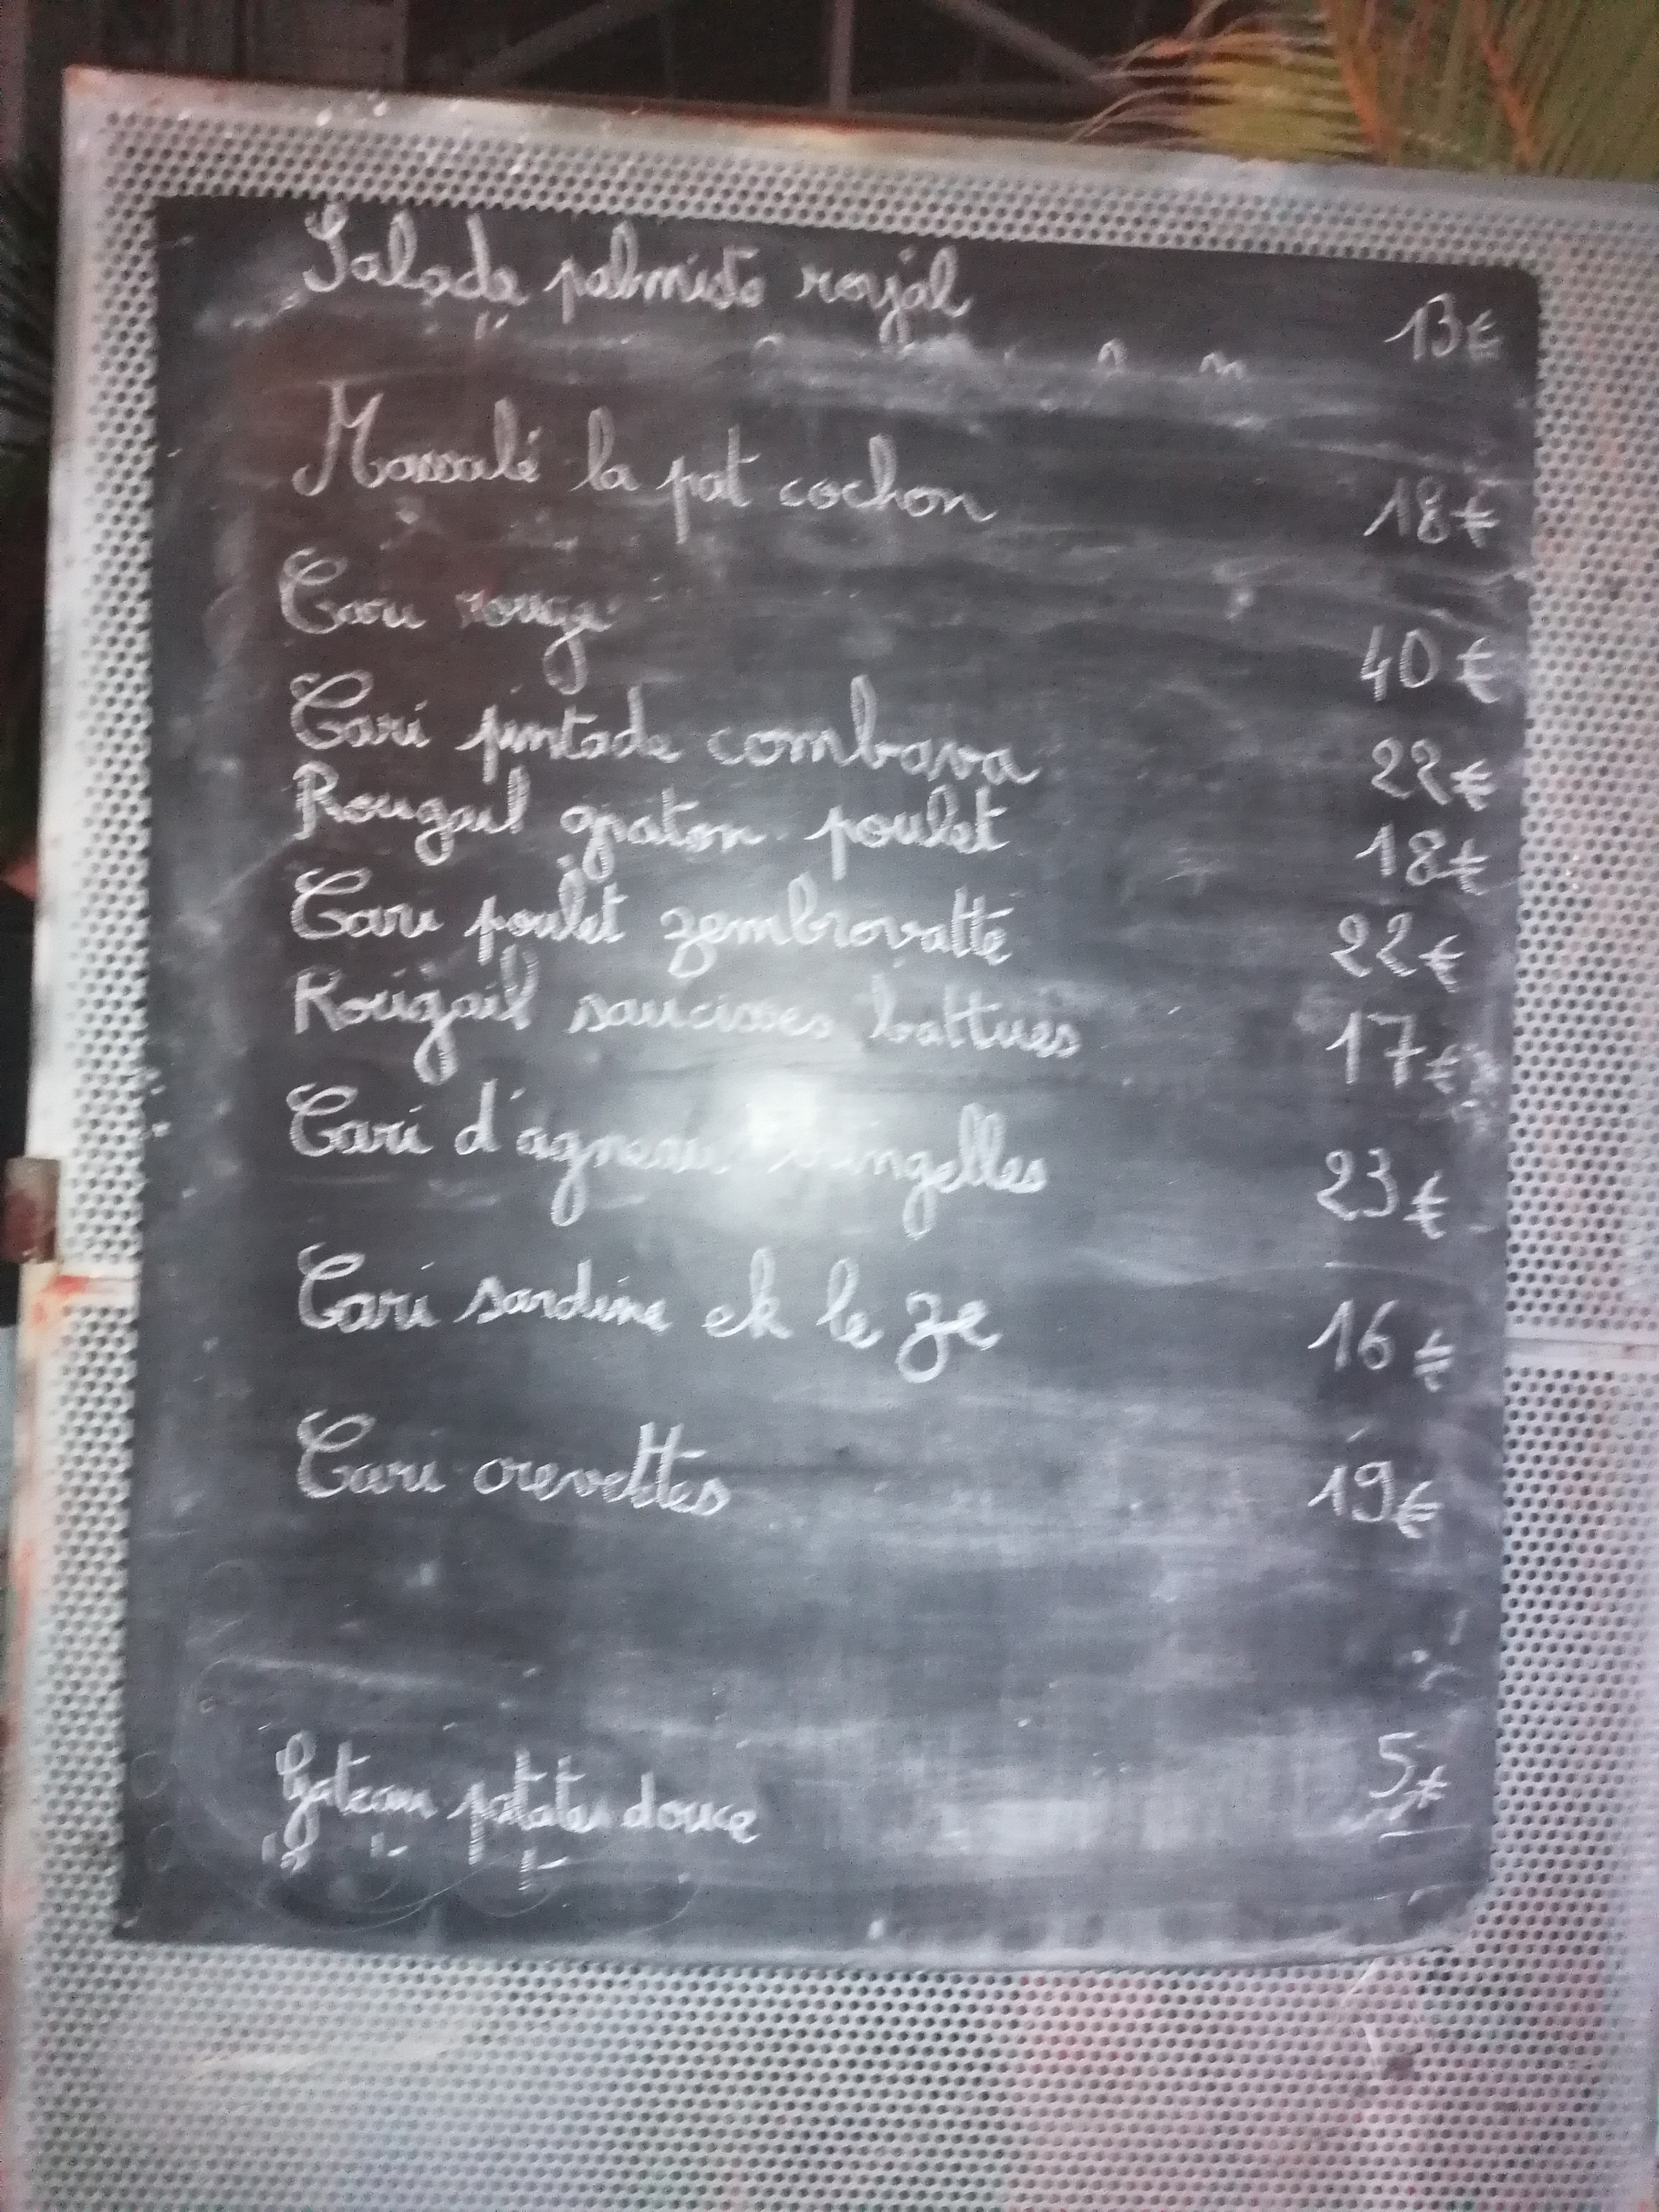 Salade palmiste royal 13€
Massalé la pat cochon 18€
Cari rouge 40€
Cari pintade combava 22€
Rougail graton poulet 18€
Cari poulet zembrovatte 22€
Rougail saucisses battues 17€
Cari d'agneau 23€
Cari sardine ek le ze 16€
Cari crevettes 19€
Gateau patates douce 5€